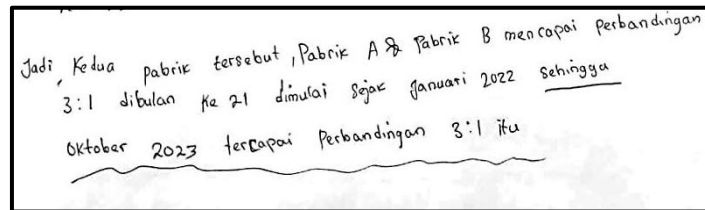 Jadi, Kedua pabrik tersebut, Pabrik A & Pabrik B mencapai perbandingan
3:1 dibulan Ke 21 dimulai sejak Januari 2022 sehingga
Oktober 2023 tercapai Perbandingan 3:1 itu